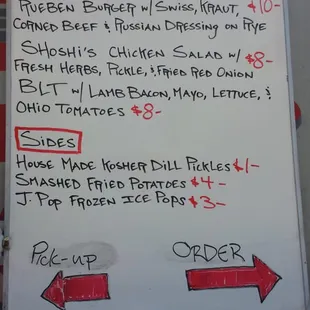 RUEBEN BURGER W/ SWISS, KRAUT, $10-
CORNED BEEF & RUSSIAN DRESSING ON RYE
SHOSHI'S CHICKEN SALAD W/ $8-
FRESH HERBS, PICKLE, & FRIED RED ONION
BLT W/ LAMB BACON, MAYO, LETTUCE, &
OHIO TOMATOES $8-
SIDES
HOUSE MADE KOSHER DILL PICKLES $1-
SMASHED FRIED POTATOES $4-
J. POP FROZEN ICE POPS $3-
Pick-up ORDER